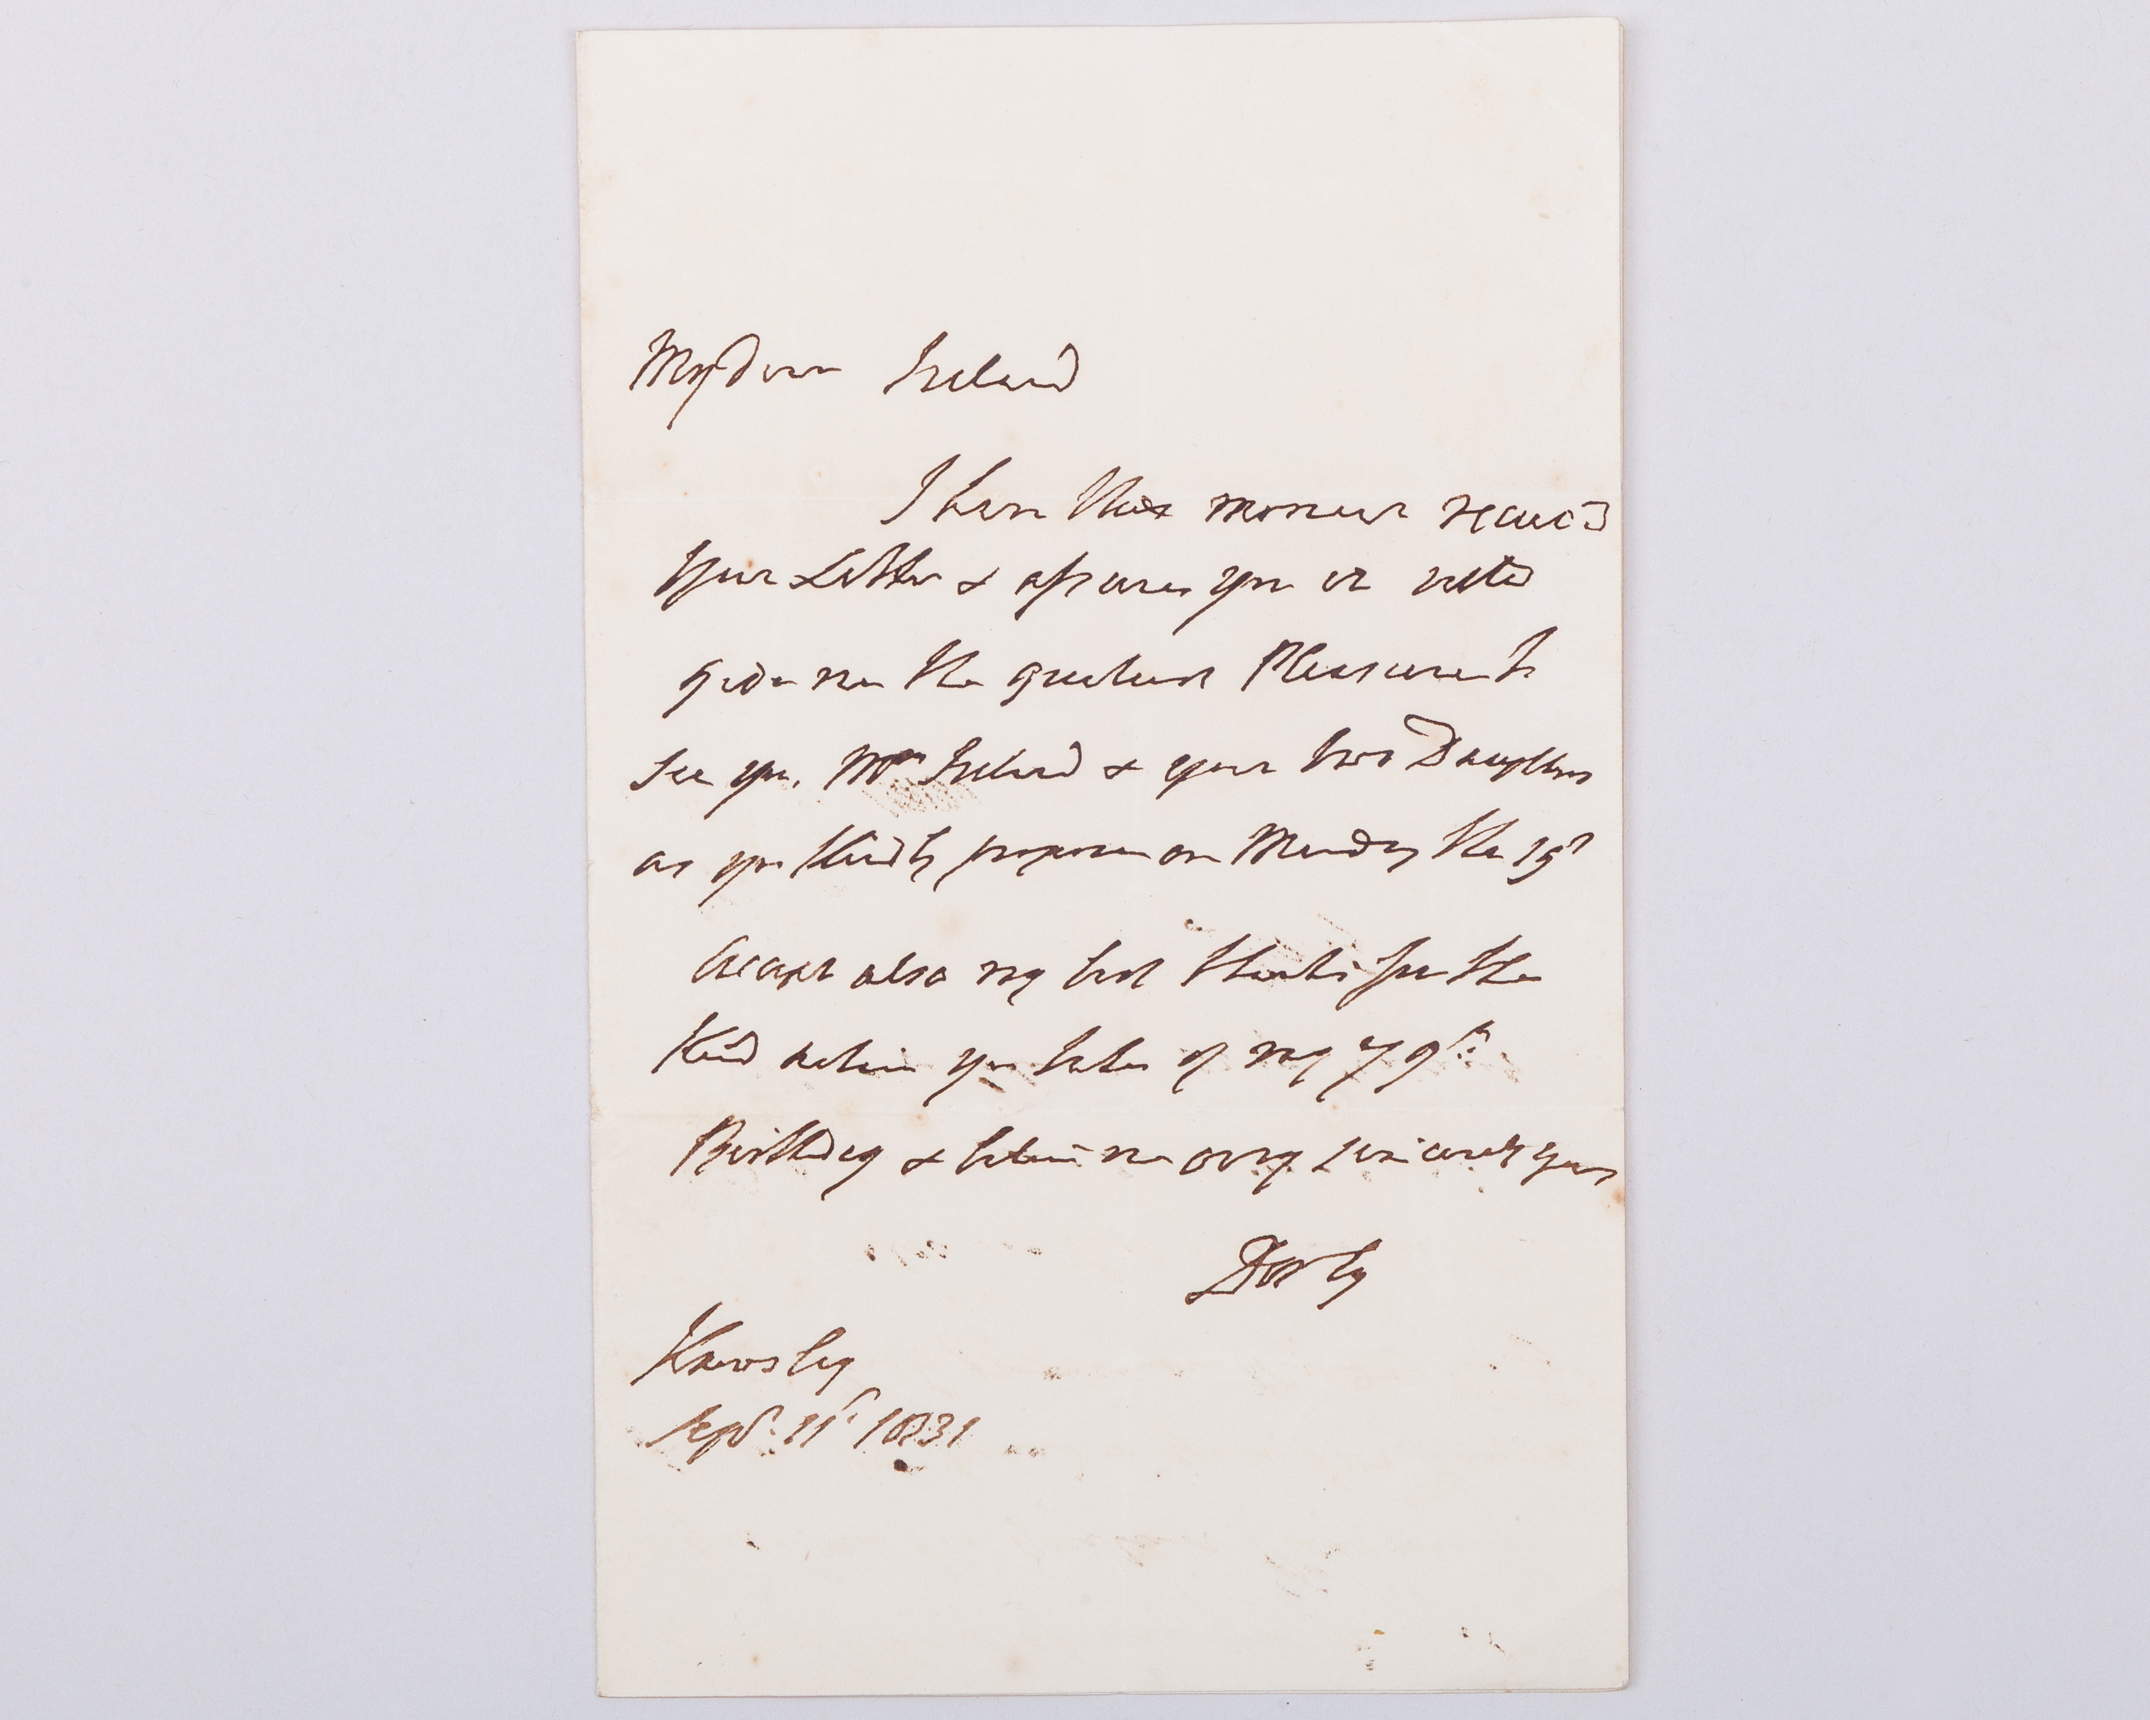 My Dear Ireland
I have this moment receiv'd
your Letter & assure you it will
give me the greatest Pleasure to
see you, Mrs Ireland & your two Daughters
as you kindly propose on Monday the 19th
Accept also my best thanks for the
Kind notice you take of my 79th
Birthday & believe me very sincerely yours
Derby
Knowsley
Sepr. 11th 1831